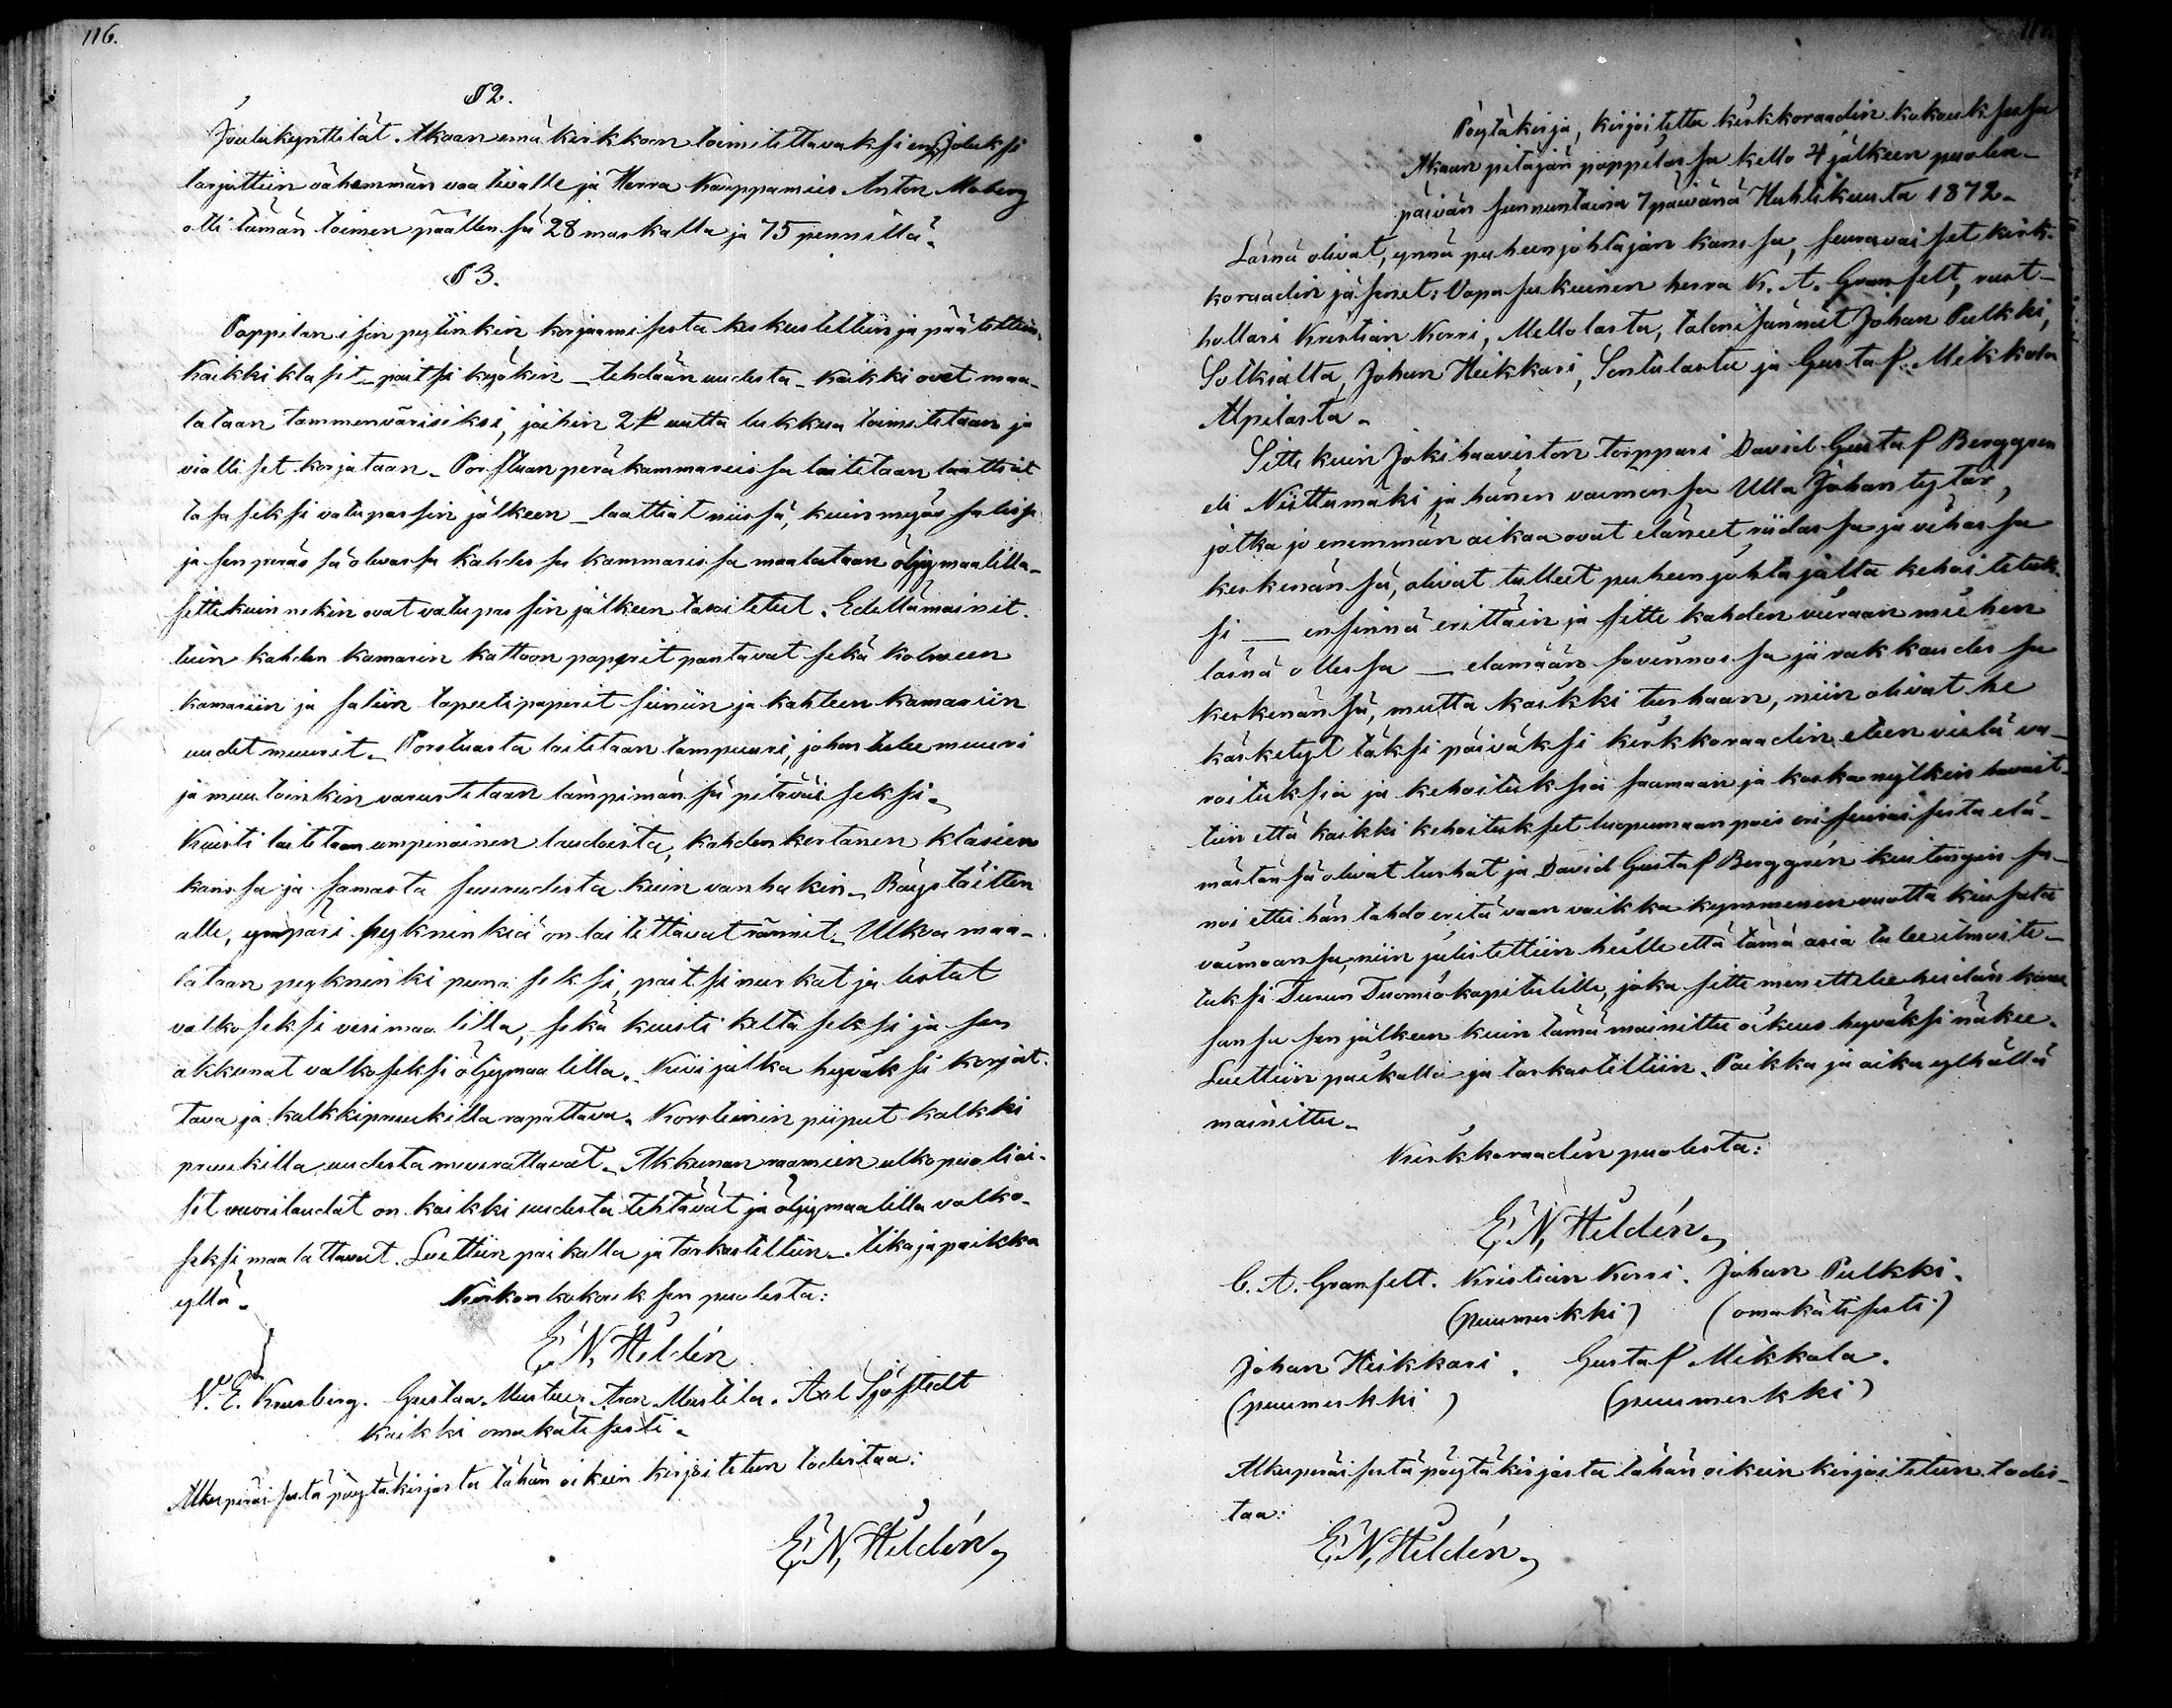 116.
§ 2.
Joulukynttilät Akaan emä kirkkoon toimitettavaksi ens Jouluksi
tarjottiin vähemmän vaativalle ja Herra Kauppamies Anton Moberg
otti tämän toimen päällensä 28 markalla ja 75 pennillä.
§ 3.
Pappilan ison pytinkin korjaamisesta keskusteltiin ja päätettiin:
Kaikki klasit – paitsi kyökin – tehdään uudesta – Kaikki ovet maa-
lataan tammenvärisiksi, joihin 2 uutta lukkua toimitetaan ja
vialliset korjataan. Porstuan peräkammareissa laitetaan laattiat
tasaseksi vatupassin jälkeen – laattiat niissä, kuin myös salissa
ja sen peräs sä olevassa kahdes sa kammarissa maalataan öljymaalilla –
sittekuin nekin ovat vatupassin jälkeen tasoitetut. Edellämainit-
tuin kahden kamarin kattoon paperit pantavat sekä kolmeen
kamariin ja saliin tapeetipaperit seiniin ja kahteen kamariin
uudet muurit. Porstuasta laitetaan tampuuri, johon tulee muuri
ja muutoinkin varustetaan lämpimänsä pitäväiseksi.
Kuisti laitetaan umpinainen laudoista, kahdenkertanen klasien
kanssa ja samasta suuruudesta kuin vanhakin. Räystäitten
alle, ympäri pykninkiä on laitettavat rännit. Ulkoa maa-
lataan pykninki punaseksi, paitsi nurkat ja listat
valkoseksi vesimaalilla, sekä kuisti keltaseksi ja sen
akkunat valkoseksi öljymaalilla. Kivijalka hyväksi korjat-
tava ja kalkkipruukilla rapattava. Korsteinin piiput kalkki
pruukilla uudesta muurattavat. Akkunan raamien ulkopuoliai-
set vuorilaudat on kaikki uudesta tehtävät ja öljymaalilla valko-
seksi maalattavat. Luettiin paikalla ja tarkastettiin. Aika ja paikka
yllä. Kirkonkokouksen puolesta:
E. N. Hildén
N. E. Krusberg. Gustaa Mustue, Aron Mustila. Axl Sjöstedt
Kaikki omakätisesti.
Alkuperäisestä pöytäkirjasta tähän oikein kirjoitetun todistaa:
E. N. Hildén
Pöytäkirja, kirjoitettu kirkkoraadin kokouksessa
Akaan pitäjän pappilassa kello 4 jälkeen puolen-
päivän sunnuntaina 7 päivänä Huhtikuusta 1872.
Läsnä olivat, ynnä puheenjohtajan kanssa, seuraavaiset kirk-
koraadin jäsenet: Vapasukuinen herra K. A. Granfelt, rust-
hollari Kristian Korri, Mellolasta, talonisännät Johan Pulkki,
Solkialta, Johan Heikkari, Sontulasta ja Gustaf Mikkola
Alpilasta.
Sitte kuin Jokihaaviston torppari David Gustaf Berggren
eli Niittumäki ja hänen vaimonsa Ulla Johantytär,
jotka jo enemmän aikaa ovat eläneet riidassa ja vihassa
keskenänsä, olivat tulleet puheenjohtajalta kehoitetuk-
si — ensinnä erittäin ja sitte kahden vieraan miehen
läsnä ollessa — elämään sovinnossa ja rakkaudessa
keskenänsä, mutta kaikki turhaan, niin olivat he
käsketyt täksi päiväksi kirkkoraadin eteen vielä va-
roituksia ja kehoituksia saamaan ja koska nytkin havait-
tiin että kaikki kehoitukset luopumaan pois eri seuraisesta elä-
mästänsä olivat turhat ja David Gustaf Berggrén kuitengin sa-
noi ettei hän tahdo eritä vaan vaikka kymmenen vuotta kiusata
vaimoansa, niin julistettiin heille että tämä asia tulee ilmoite-
tuksi Turun Tuomiokapitulille, joka sitte menettelee heidän kans-
sansa sen jälkeen kuin tämä mainittu oikeus hyväksi näkee.
Luettiin paikalla ja tarkastettiin. Paikka ja aika ylhällä
mainittu.
Kirkkoraadin puolesta:
E. N. Hildén
C. A. Granfelt. Kristian Korri. Johan Pulkki.
(puumerkki) (omakätisesti)
Johan Heikkari. Gustaf Mikkola.
(puumerkki) (puumerkki)
Alkuperäisestä pöytäkirjasta tähän oikein kirjoitetun todis-
taa:
E. N. Hildén